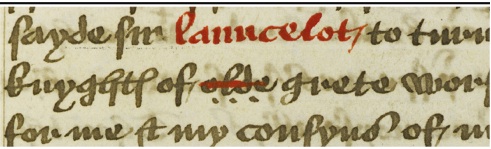 sayde sir launcelot to turn
knyghth of olde grete wor
for me & my cosyns of m